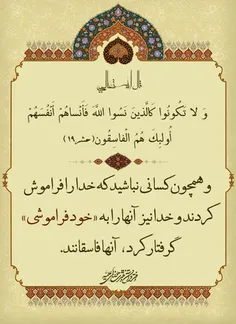 قال الله تعالی
وَ لا تَكُونُوا كَالَّذينَ نَسُوا اللَّهَ فَأَنْساهُمْ أَنْفُسَهُمْ
أُولئِكَ هُمُ الْفاسِقُون (حشر ۱۹)
و همچون کسانی نباشید که خدا را فراموش
کردند و خدا نیز آنها را به «خود فراموشی»
گرفتار کرد، آنها فاسقانند.